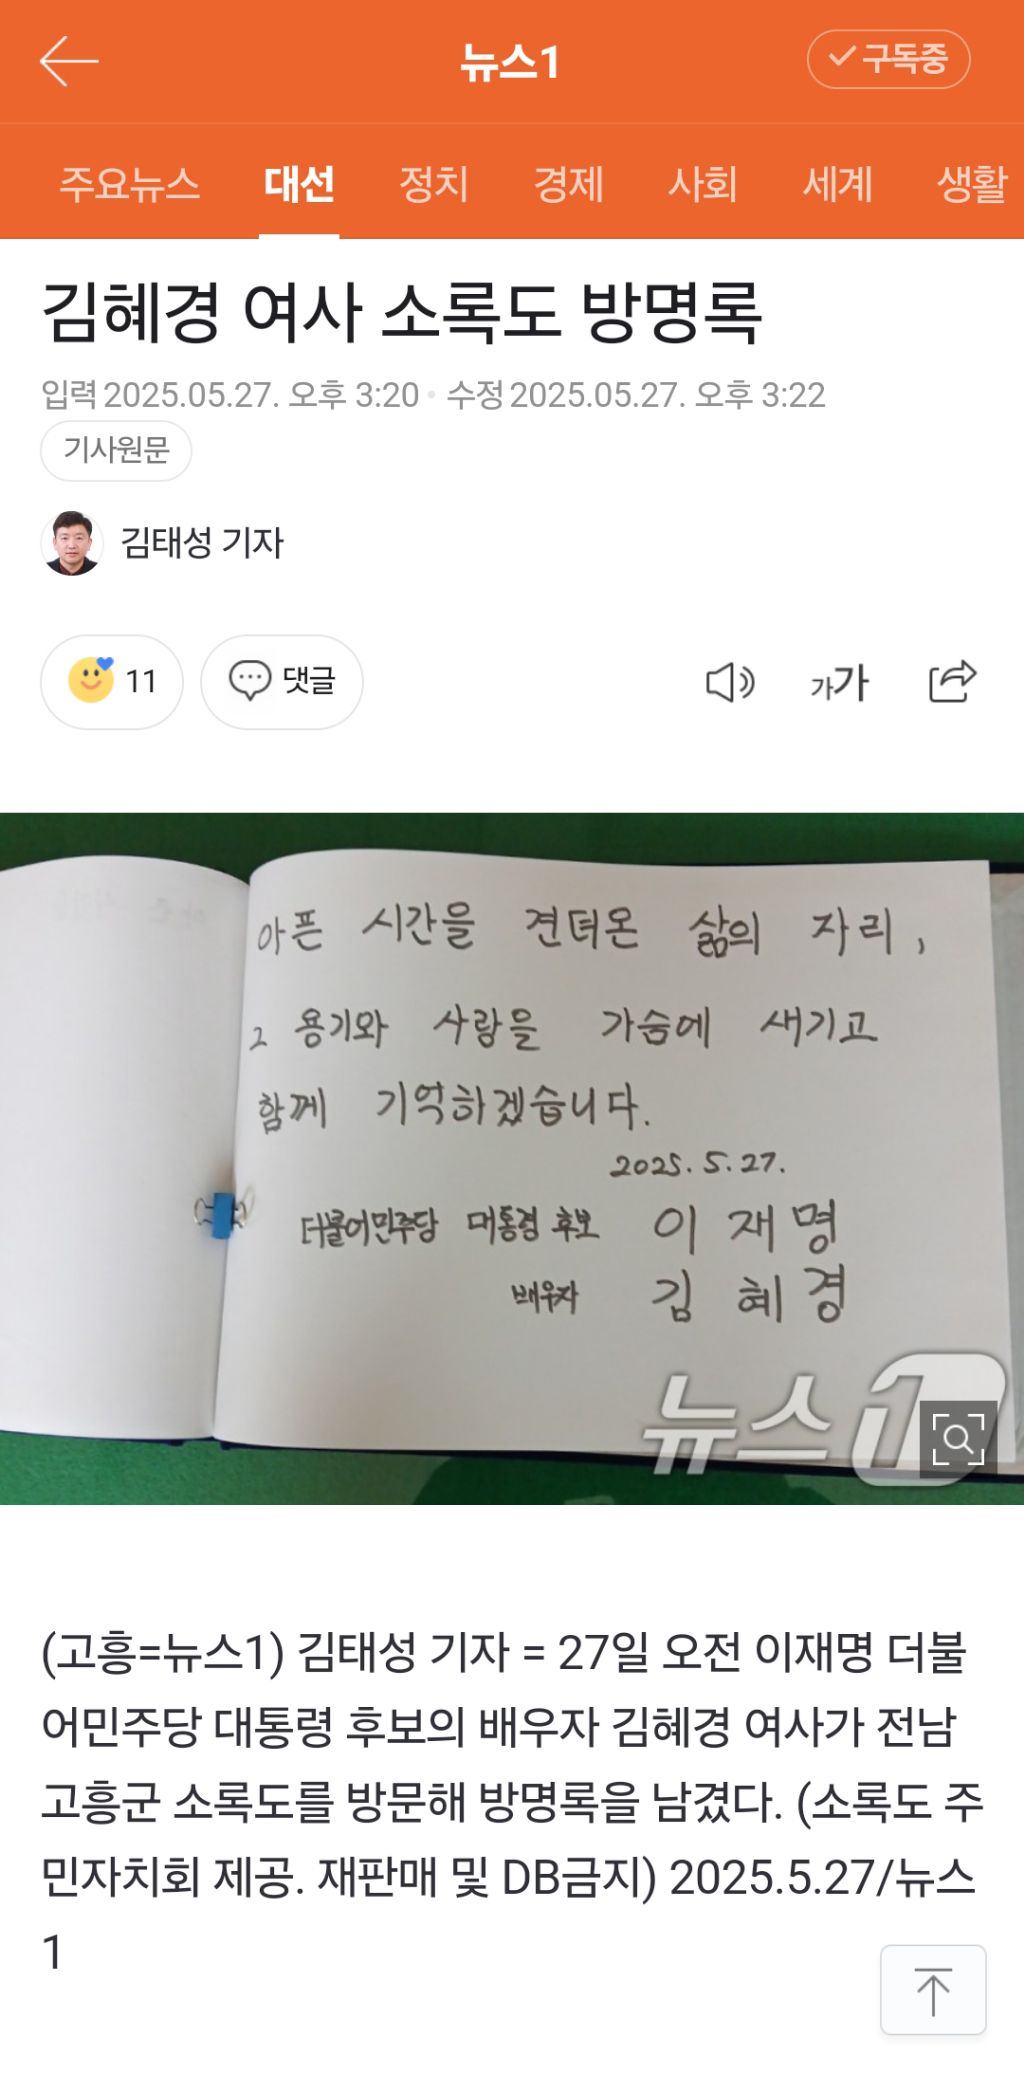 뉴스1
구독중
주요뉴스 대선 정치 경제 사회 세계 생활
김혜경 여사 소록도 방명록
입력 2025.05.27. 오후 3:20 • 수정 2025.05.27. 오후 3:22
기사원문
김태성 기자
11 댓글 가가
아픈 시간을 견뎌온 삶의 자리,
그 용기와 사랑을 가슴에 새기고
함께 기억하겠습니다.
2025. 5. 27.
더불어민주당 대통령 후보 이재명
배우자 김혜경
뉴스1
(고흥=뉴스1) 김태성 기자 = 27일 오전 이재명 더불
어민주당 대통령 후보의 배우자 김혜경 여사가 전남
고흥군 소록도를 방문해 방명록을 남겼다. (소록도 주
민자치회 제공. 재판매 및 DB금지) 2025.5.27/뉴스
1